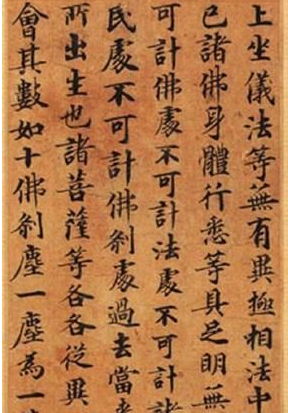 上坐儀法等無有異極相法中
已諸佛身體行悉等具足明無
可計佛處不可計法處不可計諸
民處不可計佛剎處過去當
所出生也諸菩薩等各各從異
會其數如十佛剎塵一塵為一